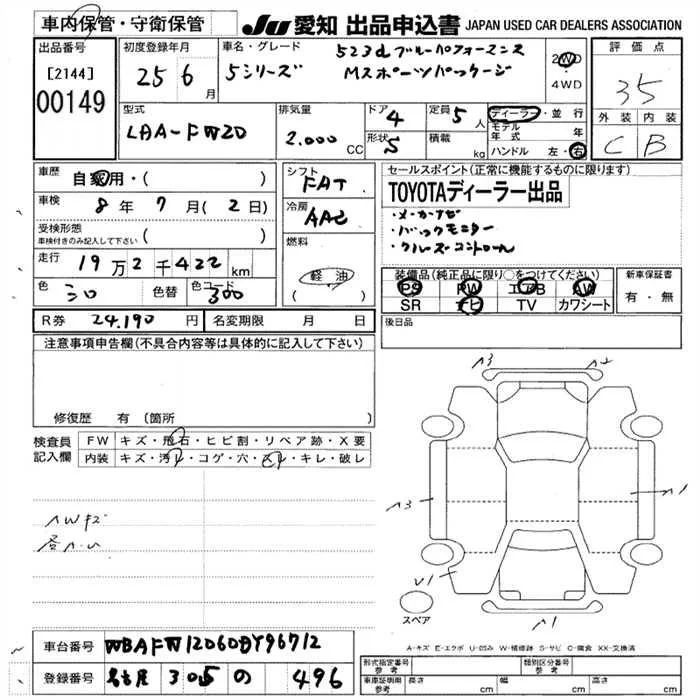 車内保管・守衛保管
JU 愛知 出品申込書 JAPAN USED CAR DEALERS ASSOCIATION
出品番号
[2144]
00149
初度登録年月
25 6 月
車名・グレード
523d ブルーパフォーマンス
5シリーズ Mスポーツパッケージ
2WD
4WD
評価点
35
外装 内装
C B
型式
LDA-FW20
排気量
2.000 CC
ドア 4
形状 5
定員 5 人
積載 kg
ディーラー・並行
モデル年式 年
ハンドル 左・右
車歴 自家用・( )
車検 8 年 7 月 ( 2 日 )
受検形態
車検付きのみ記入して下さい ( )
走行 19 万 2 千 422 km
色 シロ 色替 色コード 300
シフト
FAT
冷房
AAC
燃料
軽油
( )
セールスポイント(正常に機能するものに限ります)
TOYOTAディーラー出品
・メーカーナビ
・バックモニター
・クルーズコントロール
装備品(純正品に限り○をつけてください)
PS PW エアB AW
SR ナビ TV カワシート
新車保証書
有・無
R券 24.190 円 名変期限 月 日
後日品
注意事項申告欄(不具合内容等は具体的に記入して下さい)
修復歴 有 (箇所 )
検査員記入欄
FW キズ・飛石・ヒビ割・リペア跡・X要
内装 キズ・汚レ・コゲ・穴・スレ・キレ・破レ
A3 A2
A3 A1
U1
A1
スペア
A-キズ E-エクボ U-凹み W-補修跡 S-サビ C-腐食 XX-交換済
車台番号 WBAFW12060DY96712
登録番号 名古屋 305 の 496
形式指定番号 参考
類別区分番号 参考
車庫証明用 参考 長さ cm 幅 cm 高さ cm